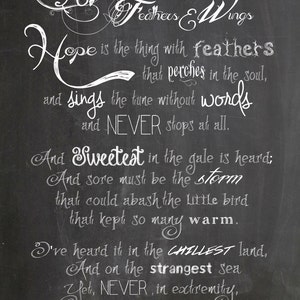 Feathers & Wings
Hope is the thing with feathers
that perches in the soul,
and sings the tune without words
and NEVER stops at all.
And Sweetest in the gale is heard;
And sore must be the storm
that could abash the little bird
that kept so many warm.
I've heard it in the CHILLEST land,
And on the strangest sea
Yet, NEVER, in extremity,